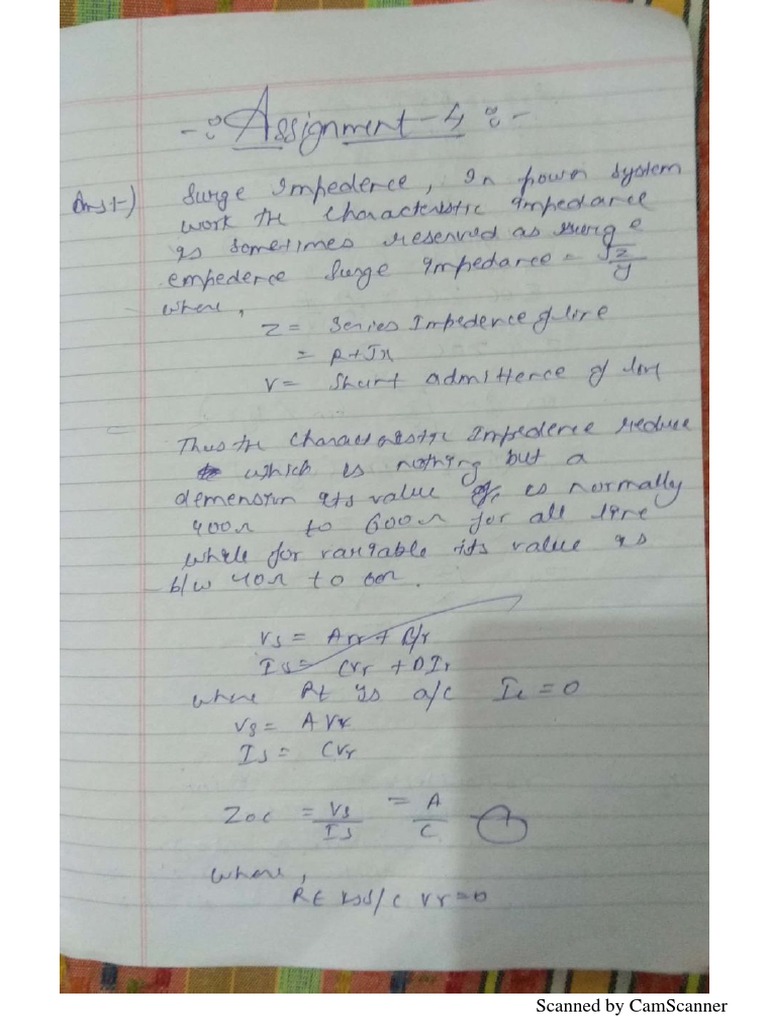 -: Assignment-4 :-
Ans1-) Surge Impedence, In power system
work the characteristic impedance
is sometimes reserved as surge
empederce Surge Impedance = √z/y
where,
Z = Series Impedence of line
= R+Jx
Y = Shunt admittence of line
Thus the characteristic Impederce reduce
which is nothing but a
demension its value is normally
400Ω to 600Ω for all line
while for variable its value is
b/w 40Ω to 60Ω.
Vs = AVr + BIr
Is = CVr + DIr
where Rt is o/c Ir = 0
Vs = A Vr
Is = CVr
Zoc = Vs/Is = A/C - 1
where,
Rt is s/c Vr = 0
Scanned by CamScanner